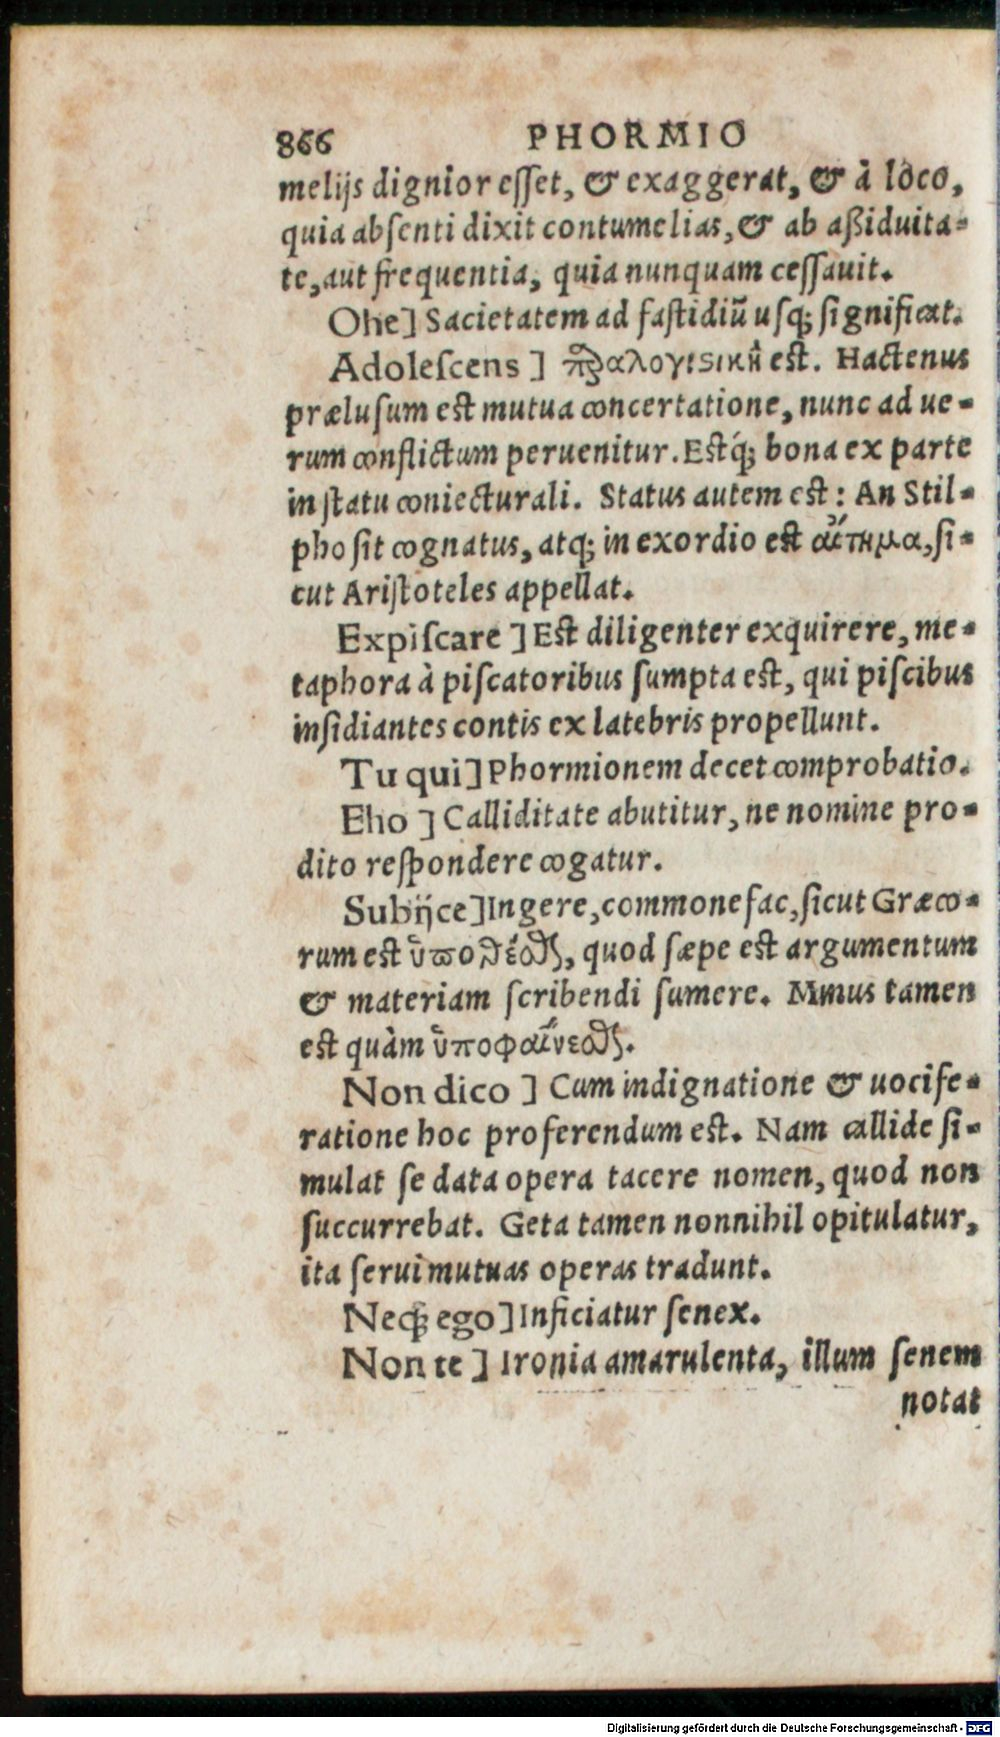 866 PHORMIO
melijs dignior esset, & exaggerat, & à loco,
quia absenti dixit contumelias, & ab aßiduita-
te, aut frequentia, quia nunquam cessauit.
Ohe] Sacietatem ad fastidiũ usq; significat.
Adolescens] παραλογιστικὴ est. Hactenus
prælusum est mutua concertatione, nunc ad ue-
rum conflictum peruenitur. Estq́; bona ex parte
in statu coniecturali. Status autem est: An Stil-
pho sit cognatus, atq; in exordio est αἴτημα, si-
cut Aristoteles appellat.
Expiscare] Est diligenter exquirere, me-
taphora à piscatoribus sumpta est, qui piscibus
insidiantes contis ex latebris propellunt.
Tu qui] Phormionem decet comprobatio.
Eho] Calliditate abutitur, ne nomine pro-
dito respondere cogatur.
Subijce] Ingere, commonefac, sicut Græco-
rum est ὑποθέσθαι, quod sæpe est argumentum
& materiam scribendi sumere. Minus tamen
est quàm ὑποφαίνεσθαι.
Non dico] Cum indignatione & uocife-
ratione hoc proferendum est. Nam callide si-
mulat se data opera tacere nomen, quod non
succurrebat. Geta tamen nonnihil opitulatur,
ita serui mutuas operas tradunt.
Neq; ego] Inficiatur senex.
Non te] Ironia amarulenta, illum senem
notat
Digitalisierung gefördert durch die Deutsche Forschungsgemeinschaft - DFG